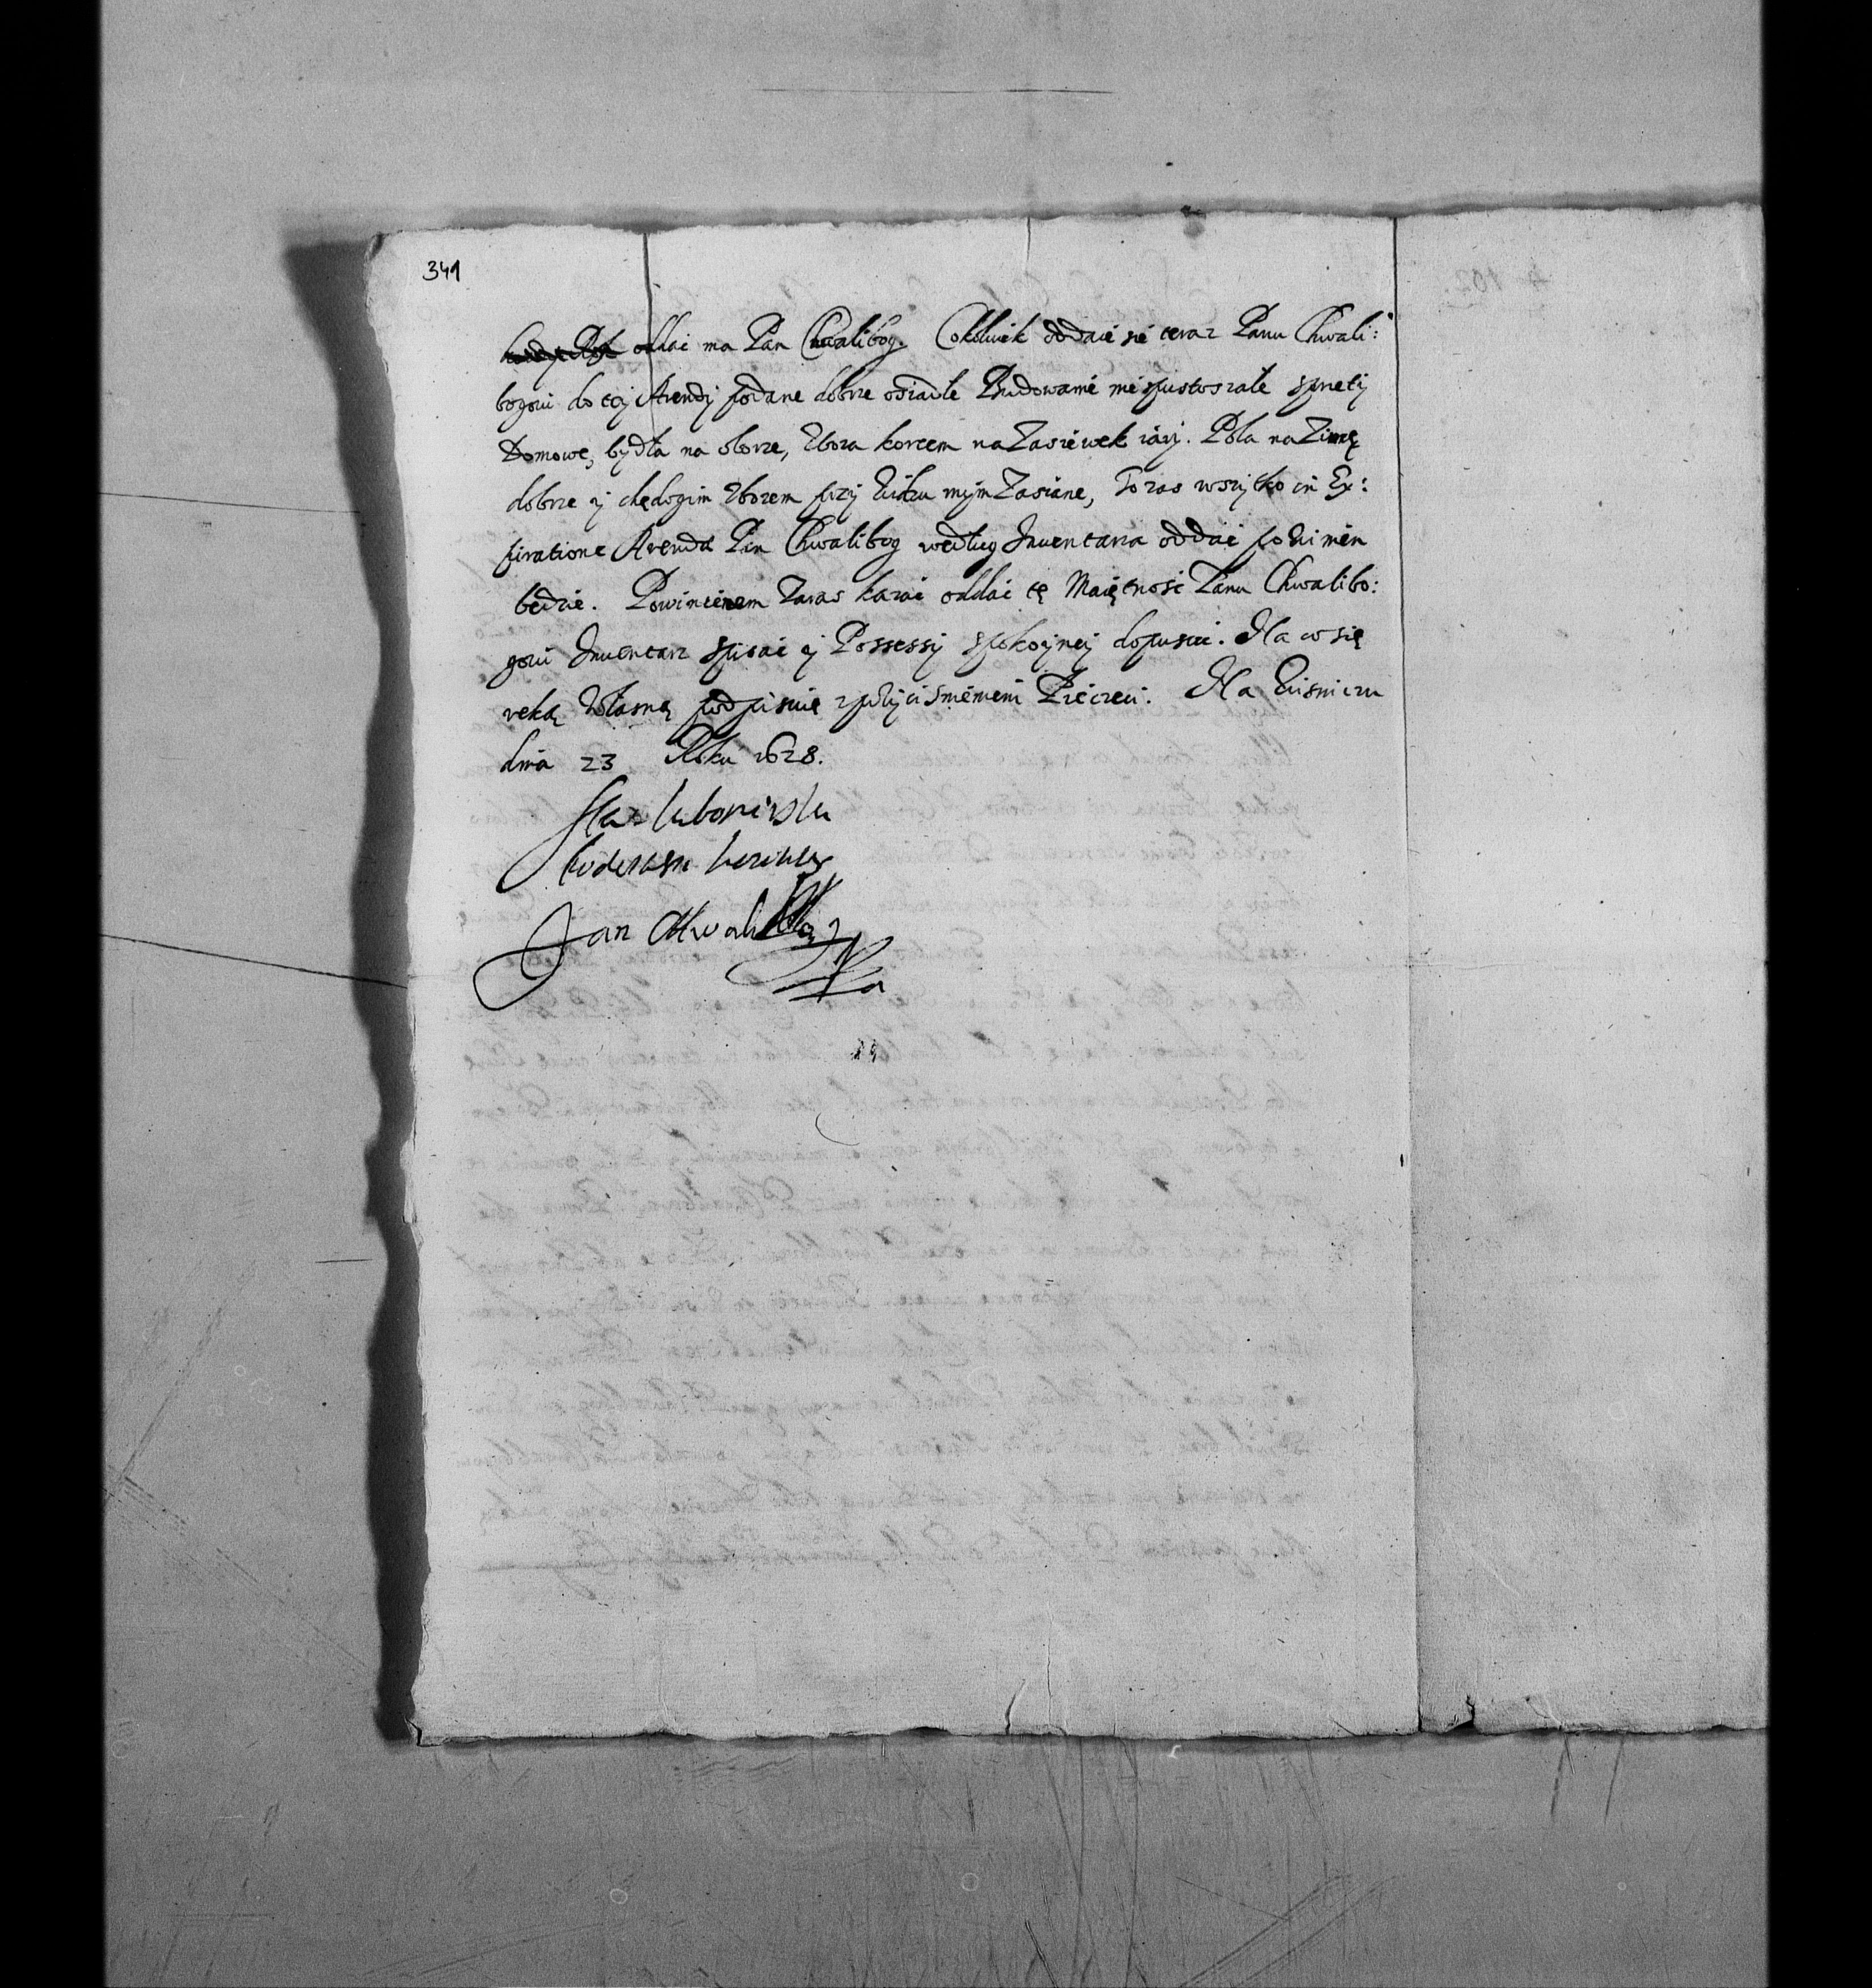 341
oddac ma Pan Chwalibog. Cokolwiek oddaie się teraz Panu Chwali:
bogowi do tej Arendy podane dobrze osiadłe Budowanie nie spustoszałe sprzęty
Domowe, bydła na oborze, Zboza korcem na Zasiewek iary. Pola na Zimę
dobrze y chędogim Zbozem przy mym Zasiane, To zas wszytko in Ex:
piratione Arendy Pan Chwalibog według Inuentarza oddać powinien
będzie. Powinienem Zaras kazac oddac tę Maiętnosc Panu Chwalibo:
gowi Inuentarz spisac y Possessy spokoyney dopuscic. Na co się
ręką Własną podpisuię z przyciśnieniem Pieczęci. Na Wisniczu
dnia 23 Roku 1628.
Sta: Lubomirsky
Jan Chwalibog